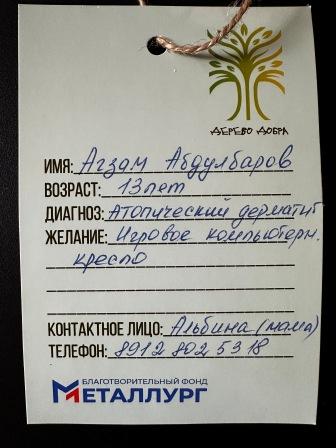 ДЕРЕВО ДОБРА
ИМЯ: Агзам Абдулбаров
ВОЗРАСТ: 13 лет
ДИАГНОЗ: Атопический дерматит
ЖЕЛАНИЕ: Игровое компьютерн.
кресло
КОНТАКТНОЕ ЛИЦО: Альбина (мама)
ТЕЛЕФОН: 8912 802 5318
БЛАГОТВОРИТЕЛЬНЫЙ ФОНД
МЕТАЛЛУРГ